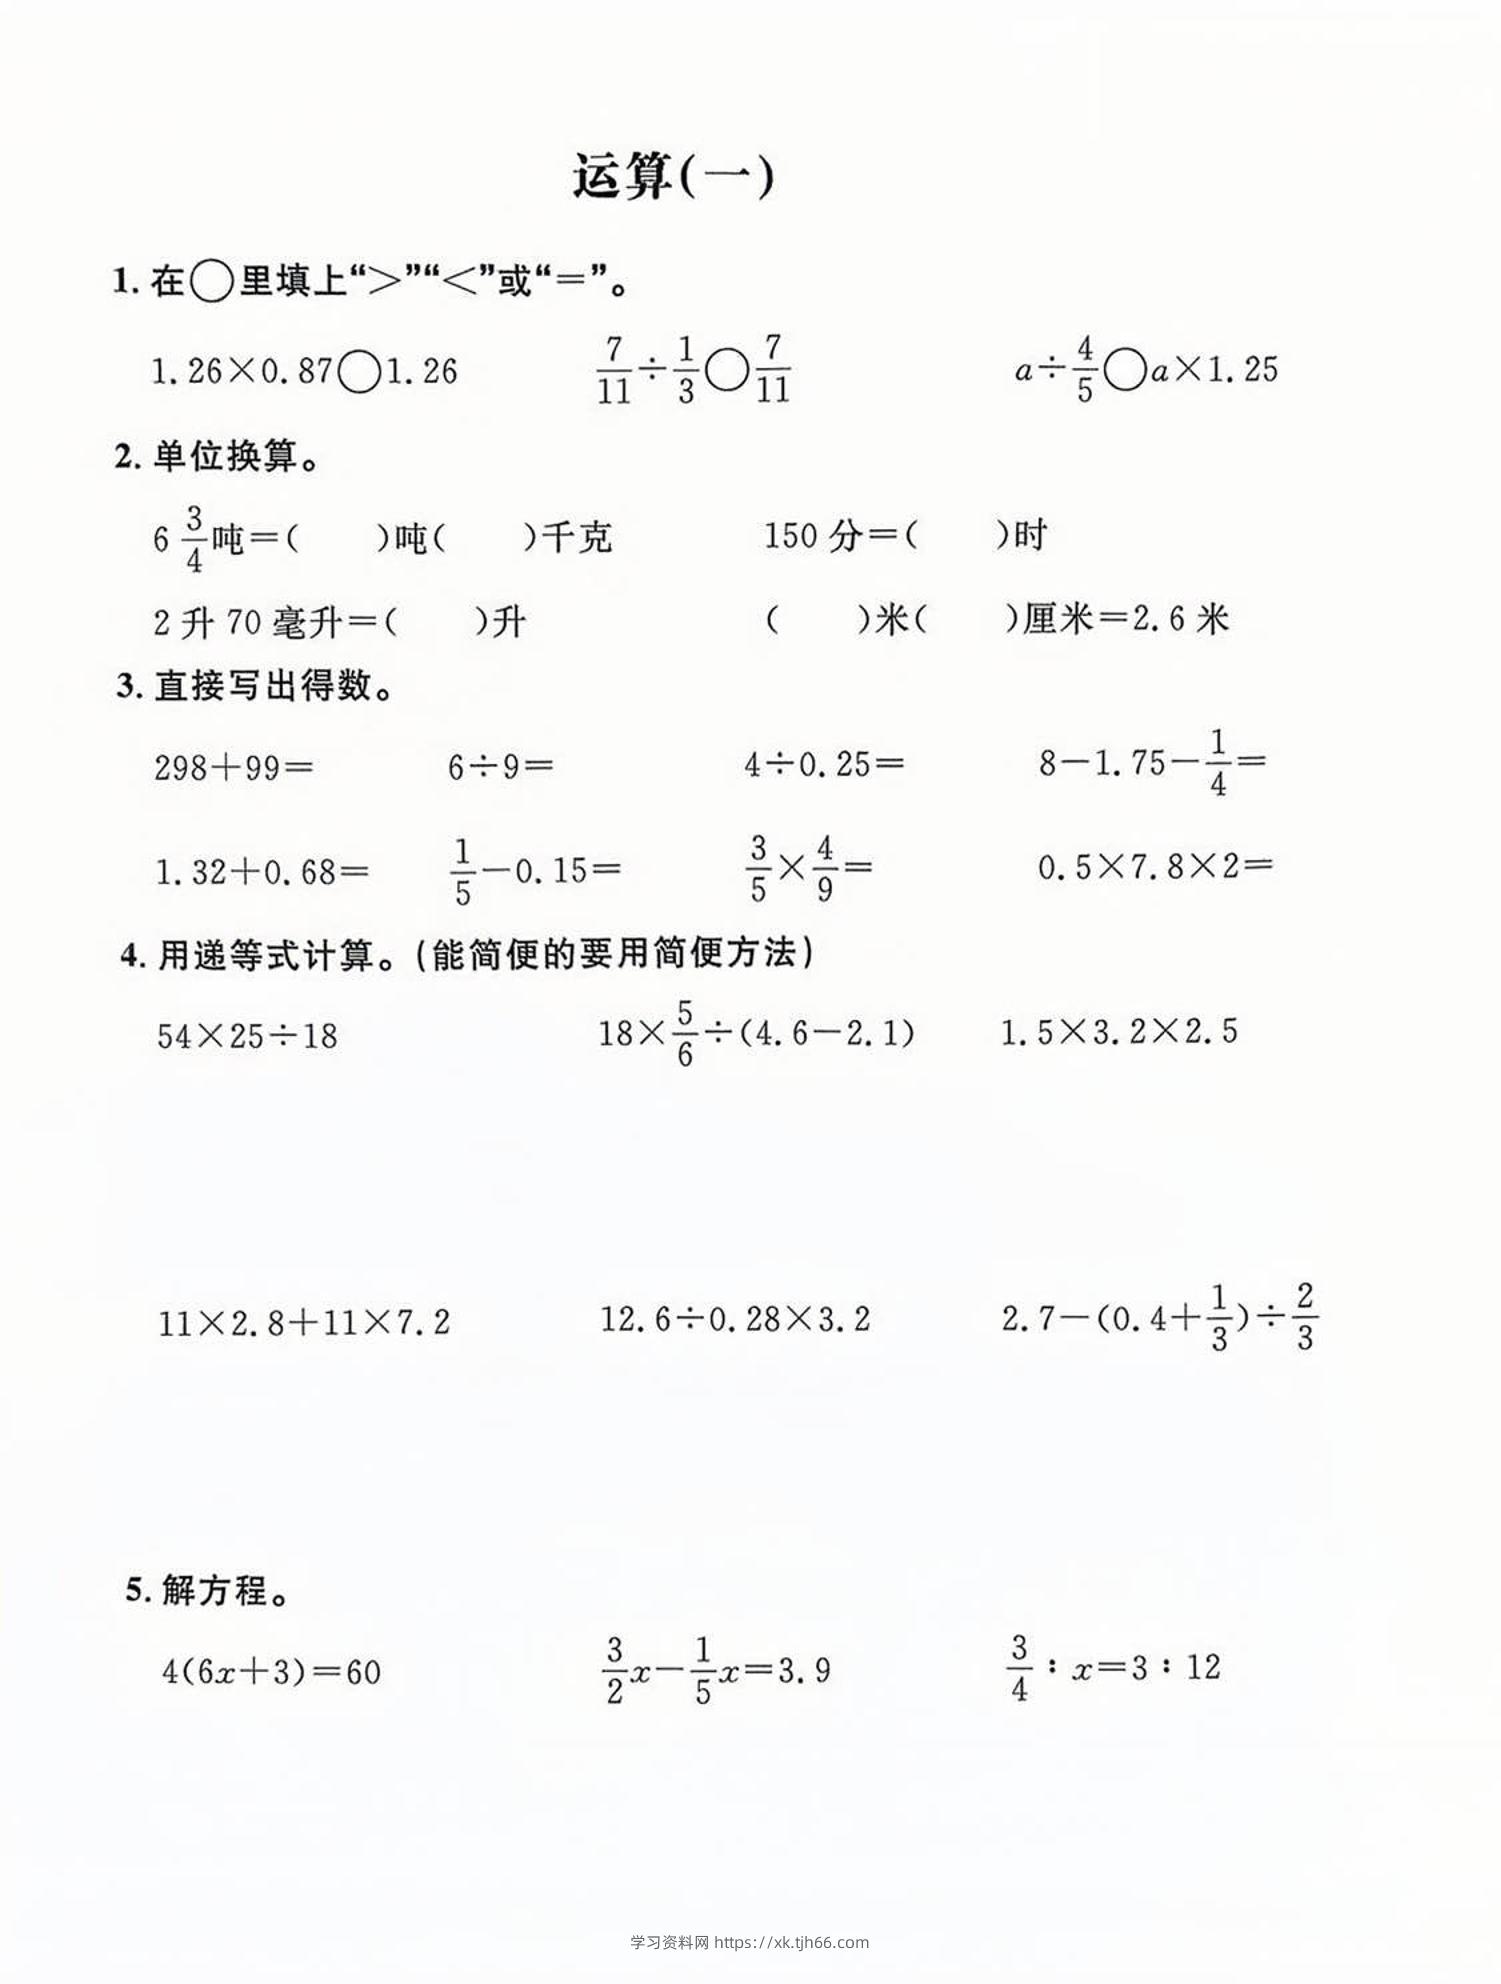 运算(一)
1. 在○里填上“>”“<”或“=”。
1.26×0.87○1.26 7/11÷1/3○7/11 a÷4/5○a×1.25
2. 单位换算。
6 3/4吨=( )吨( )千克 150 分=( )时
2 升 70 毫升=( )升 ( )米( )厘米=2.6 米
3. 直接写出得数。
298+99= 6÷9= 4÷0.25= 8-1.75-1/4=
1.32+0.68= 1/5-0.15= 3/5×4/9= 0.5×7.8×2=
4. 用递等式计算。(能简便的要用简便方法)
54×25÷18 18×5/6÷(4.6-2.1) 1.5×3.2×2.5
11×2.8+11×7.2 12.6÷0.28×3.2 2.7-(0.4+1/3)÷2/3
5. 解方程。
4(6x+3)=60 3/2x-1/5x=3.9 3/4:x=3:12
学习资料网 https://xk.tjh66.com